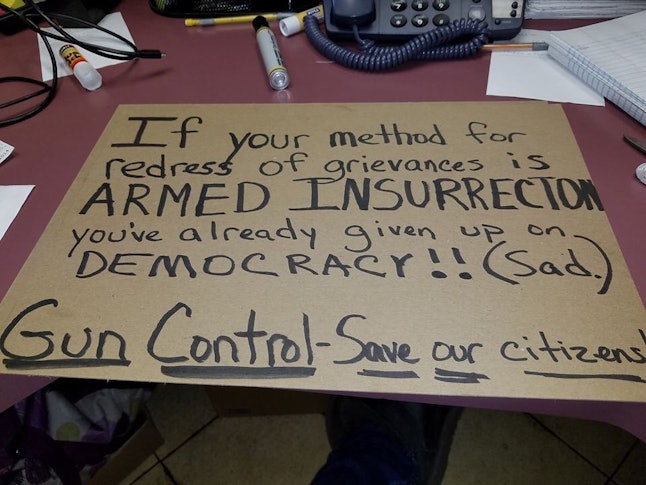 If your method for
redress of grievances is
ARMED INSURRECTON
you've already given up on
DEMOCRACY!! (Sad.)
Gun Control-Save our citizens!